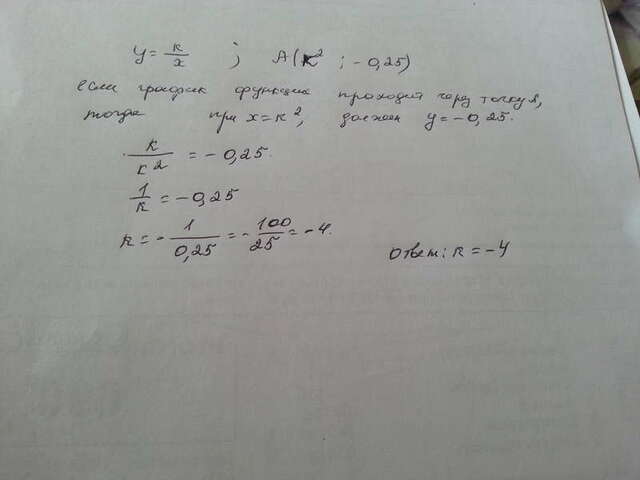 y = к/x ; A(к² ; -0,25)
если график функции проходит через точку A,
тогда при x=к², должен y=-0,25.
к/к² = -0,25.
1/к = -0,25
к = - 1/0,25 = - 100/25 = -4.
Ответ: к = -4